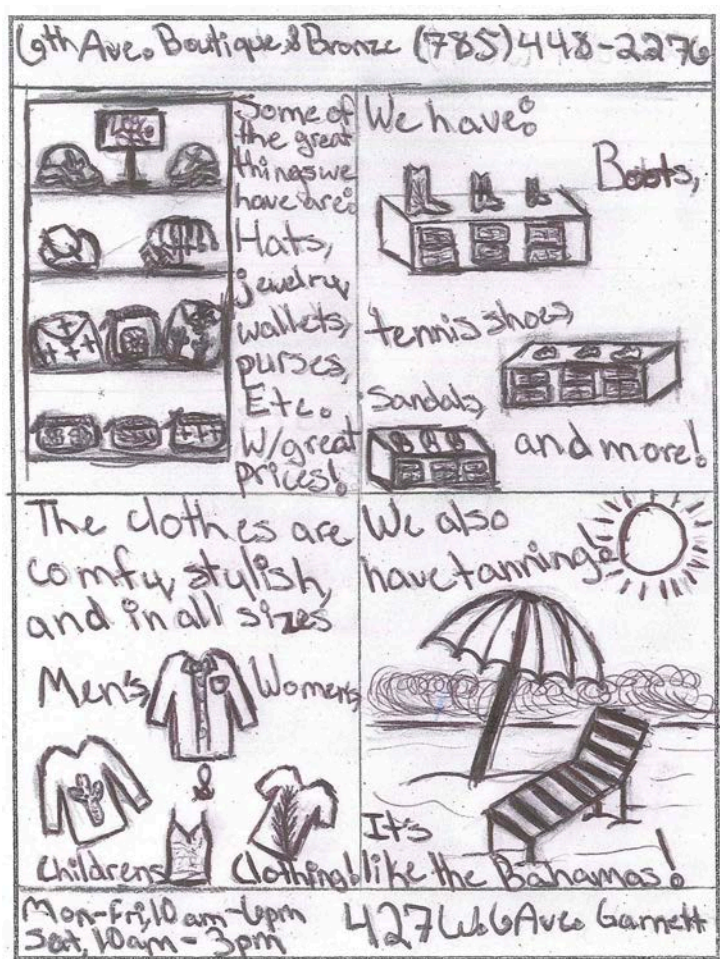 6th Ave. Boutique & Bronze (785)448-2276
Some of
the great
things we
have are:
Hats,
jewelry,
wallets,
purses,
Etc.
W/great
prices!
We have:
Boots,
tennis shoes,
Sandals,
and more!
The clothes are
comfy, stylish,
and in all sizes
Men's, Women's,
Childrens Clothing!
We also
have tanning!
It's
like the Bahamas!
Mon-Fri, 10 am-6pm
Sat, 10am - 3pm
427 W. 6 Ave. Garnett